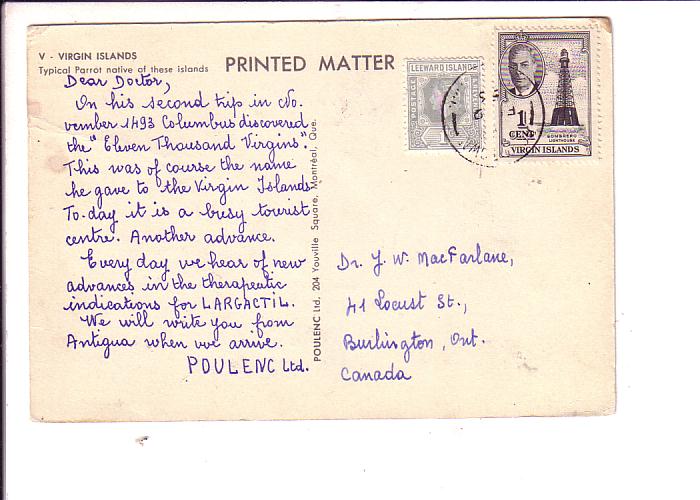 V - VIRGIN ISLANDS
Typical Parrot native of these islands
PRINTED MATTER
Dear Doctor,
On his second trip in No-
vember 1493 Columbus discovered
the "Eleven Thousand Virgins".
This was of course the name
he gave to the Virgin Islands
To-day it is a busy tourist
centre. Another advance.
Every day we hear of new
advances in the therapeutic
indications for LARGACTIL.
We will write you from
Antigua when we arrive.
POULENC Ltd.
POULENC Ltd., 204 Youville Square, Montréal, Que.
LEEWARD ISLANDS
POSTAGE
REVENUE
1
CENT
SOMBRERO
LIGHTHOUSE
VIRGIN ISLANDS
Dr. J. W. MacFarlane,
41 Locust St.,
Burlington, Ont.
Canada